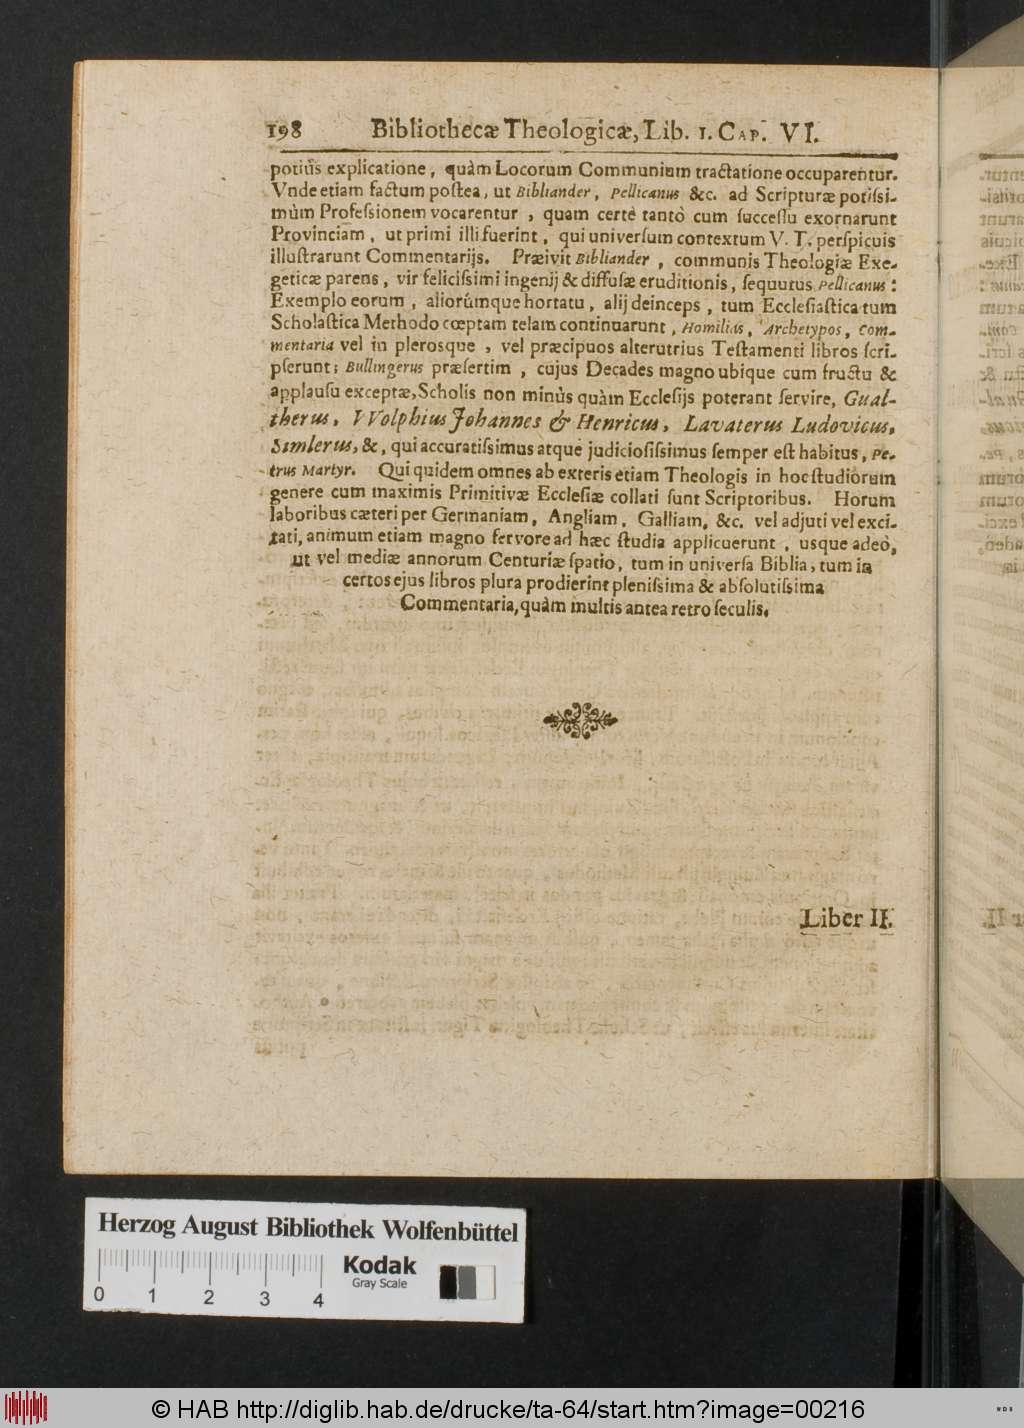 198 Bibliothecæ Theologicæ, Lib. 1. Cap. VI.
potiùs explicatione, quàm Locorum Communium tractatione occuparentur.
Vnde etiam factum poſtea, ut Bibliander, Pellicanus &c. ad Scripturæ potiſsi-
mùm Profeſsionem vocarentur, quam certè tantò cum ſucceſſu exornarunt
Provinciam, ut primi illi fuerint, qui univerſum contextum V. T. perſpicuis
illuſtrarunt Commentarijs. Præivit Bibliander, communis Theologiæ Exe-
geticæ parens, vir feliciſsimi ingenij & diffuſæ eruditionis, ſequutus Pellicanus:
Exemplo eorum, aliorúmque hortatu, alij deinceps, tum Eccleſiaſtica tum
Scholaſtica Methodo cœptam telam continuarunt, Homilias, Archetypos, Com-
mentaria vel in plerosque, vel præcipuos alterutrius Teſtamenti libros ſcri-
pſerunt; Bullingerus præſertim, cujus Decades magno ubique cum fructu &
applauſu exceptæ, Scholis non minùs quàm Eccleſijs poterant ſervire, Gual-
therus, VVolphius Johannes & Henricus, Lavaterus Ludovicus,
Simlerus, &, qui accuratiſsimus atque judicioſiſsimus ſemper eſt habitus, Pe-
trus Martyr. Qui quidem omnes ab exteris etiam Theologis in hoc ſtudiorum
genere cum maximis Primitivæ Eccleſiæ collati ſunt Scriptoribus. Horum
laboribus cæteri per Germaniam, Angliam, Galliam, &c. vel adjuti vel exci-
tati, animum etiam magno fervore ad hæc ſtudia applicuerunt, usque adeò,
ut vel mediæ annorum Centuriæ ſpatio, tum in univerſa Biblia, tum in
certos ejus libros plura prodierint pleniſsima & abſolutiſsima
Commentaria, quàm multis antea retro ſeculis.
Liber II.
Herzog August Bibliothek Wolfenbüttel
Kodak
Gray Scale
0 1 2 3 4
© HAB http://diglib.hab.de/drucke/ta-64/start.htm?image=00216